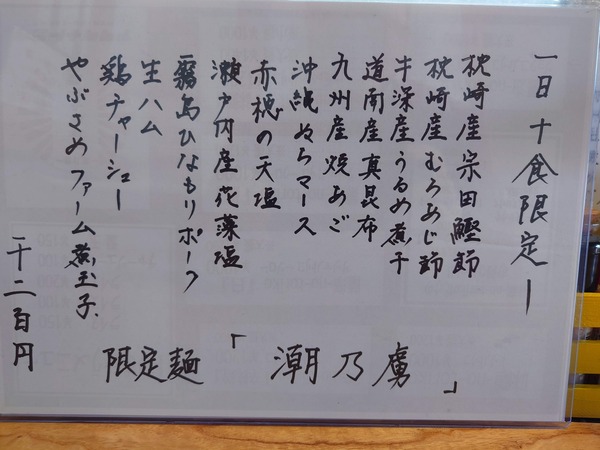 一日十食限定ー
枕崎産宗田鰹節
枕崎産むろあじ節
牛深産うるめ煮干
道南産真昆布
九州産焼あご
沖縄ぬちマース
赤穂の天塩
瀬戸内産花藻塩
霧島ひなもりポーク
生ハム
鶏チャーシュー
やぶさめファーム煮玉子、
千二百円
限定麺「潮乃虜」